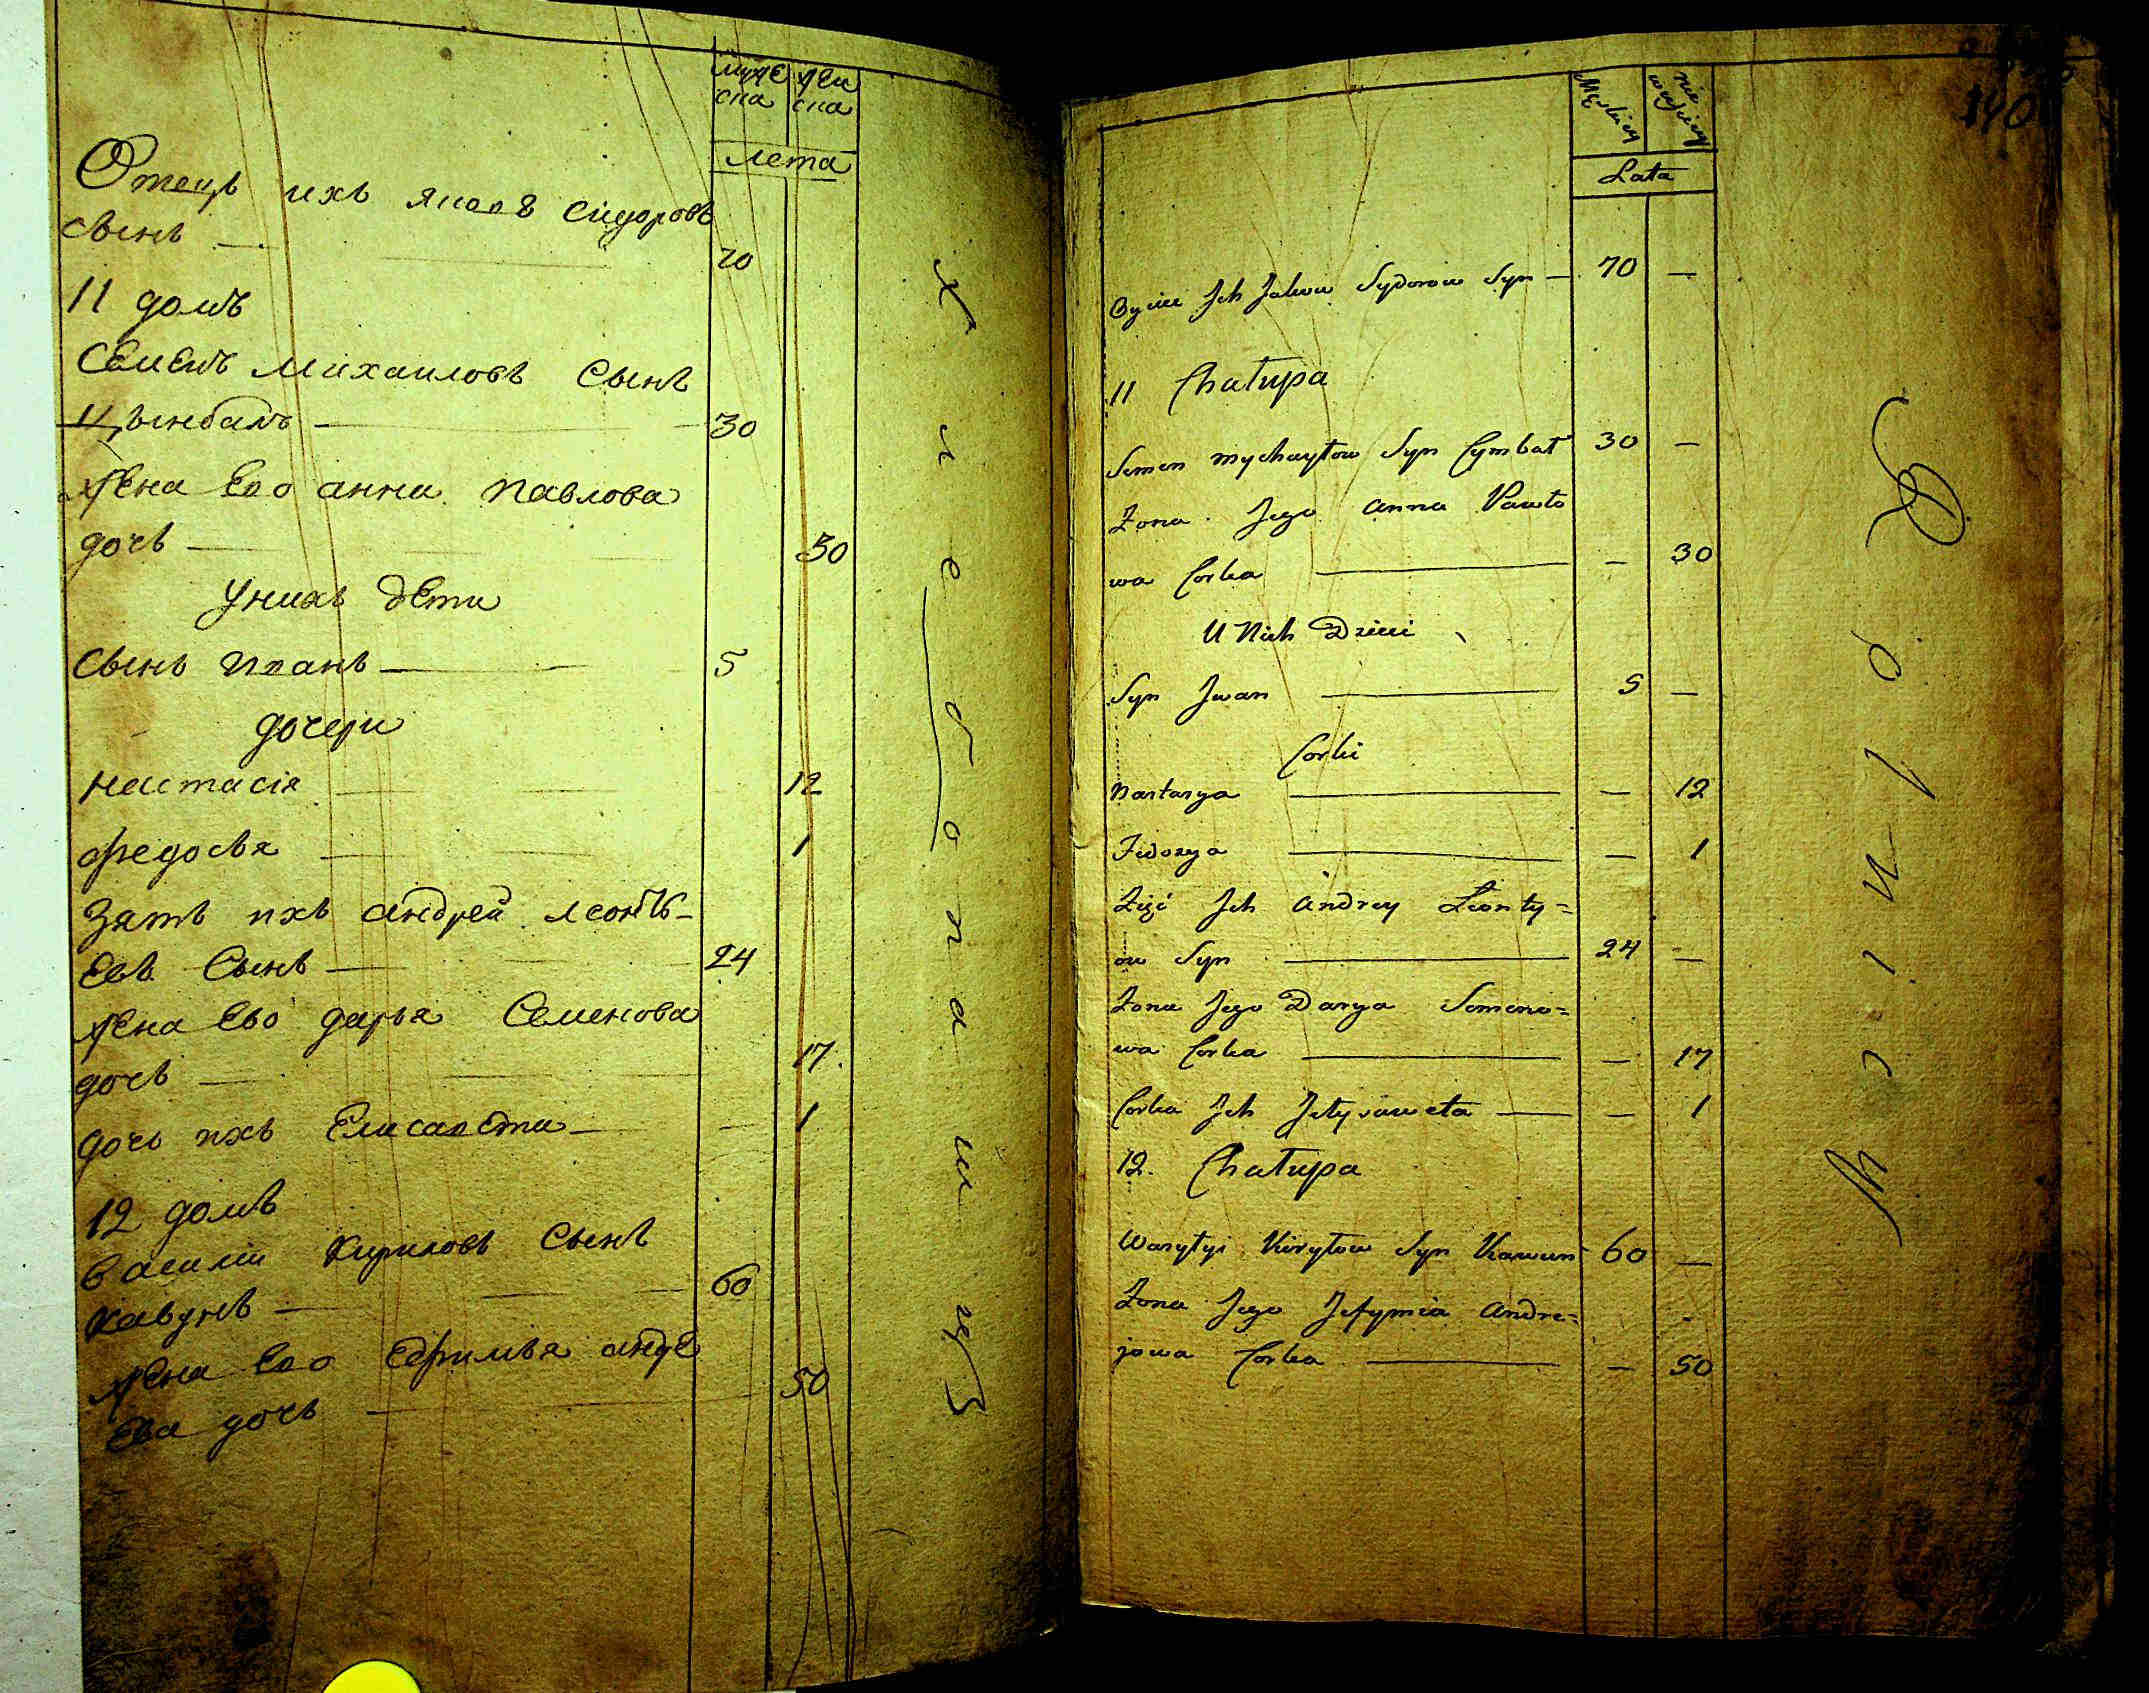 муже жен
ска ска
Лета
Отецъ ихъ яковъ сидоровъ
сынъ — 70
11 домъ
Семенъ Михаиловъ сынъ
Цынбалъ — 30
Жена Ево анна Павлова
дочь — 30
У нихъ дети
Сынъ Иванъ — 5
дочери
Настасія — 12
Федосья — 1
Зять ихъ андрей леонтъ-
Евъ Сынъ — 24
Жена Ево дарья Семенова
дочь — 17
дочь ихъ Елисавета — 1
12 домъ
Василій Кириловъ Сынъ
Кавунъ — 60
Жена Ево Ефимья андре
Ева дочь — 50
хлебопашцъ
140
Lata
Oyciec Ich Jakow Sydorow Syn — 70 —
11 Chałupa
Semen Mychayłow Syn Cymbał 30 —
Zona Jego Anna Pawło
wa Corka — — 30
U Nich Dzieci
Syn Jwan — 5 —
Corki
Nastasya — — 12
Fedosya — — 1
Zięć Ich Andrey Leonty=
ow Syn — 24 —
Zona Jego Darya Semeno=
wa Corka — — 17
Corka Ich Jełysaweta — — 1
12. Chałupa
Wasylyi Kiryłow Syn Kawun 60 —
Zona Jego Jefymia Andre=
jowa Corka — — 50
Rolnicy